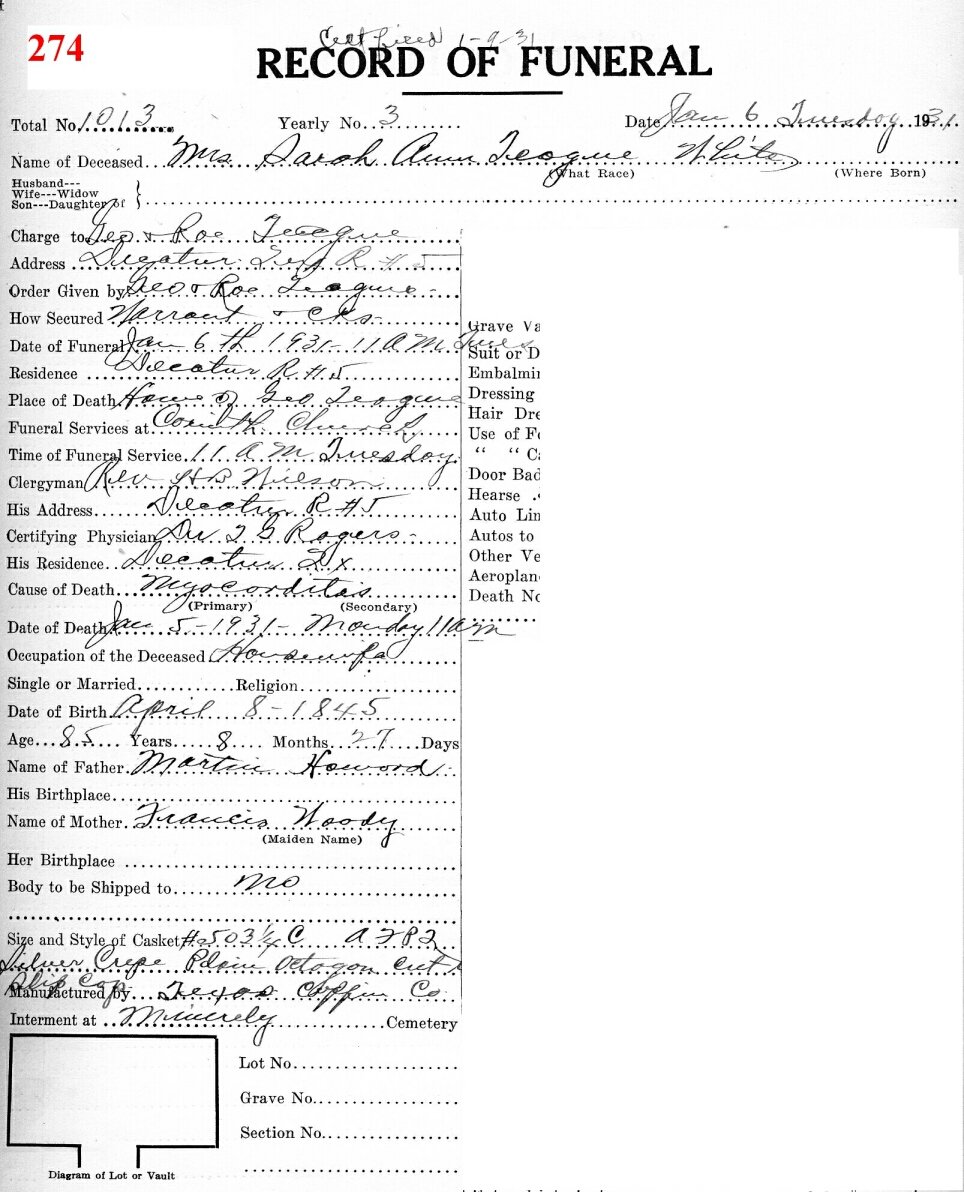 274
Certified 1-9-31
RECORD OF FUNERAL
Total No. 1013 Yearly No. 3 Date Jan 6 Tuesday 1931
Name of Deceased Mrs Sarah Ann Teague White
(What Race) (Where Born)
Husband---
Wife---Widow
Son---Daughter of
Charge to Geo & Roe Teague
Address Decatur Tex R #5
Order Given by Geo & Roe Teague -
How Secured Warrant & cks -
Date of Funeral Jan 6th 1931 - 11 A M Tues
Residence Decatur R #5
Place of Death Home of Geo Teague
Funeral Services at Corinth Church
Time of Funeral Service 11 A M Tuesday
Clergyman Rev H B Wilson
His Address Decatur R #5
Certifying Physician Dr. T G Rogers -
His Residence Decatur Tx
Cause of Death Myocorditis
(Primary) (Secondary)
Date of Death Jan 5 - 1931 - Monday 11 am
Occupation of the Deceased Housewife
Single or Married Religion
Date of Birth April 8 - 1845
Age 85 Years 8 Months 27 Days
Name of Father Martin Howord
His Birthplace
Name of Mother Francis Woody
(Maiden Name)
Her Birthplace
Body to be Shipped to Mo
Size and Style of Casket # 503 1/4 C
Silver Crepe Plain Octagon cut
Slip Cap
Manufactured by Texas Coffin Co
Interment at Cemetery
Lot No.
Grave No.
Section No.
Diagram of Lot or Vault
Grave Va
Suit or D
Embalmi
Dressing
Hair Dre
Use of F
" " Ca
Door Bad
Hearse
Auto Lin
Autos to
Other Ve
Aeroplan
Death No